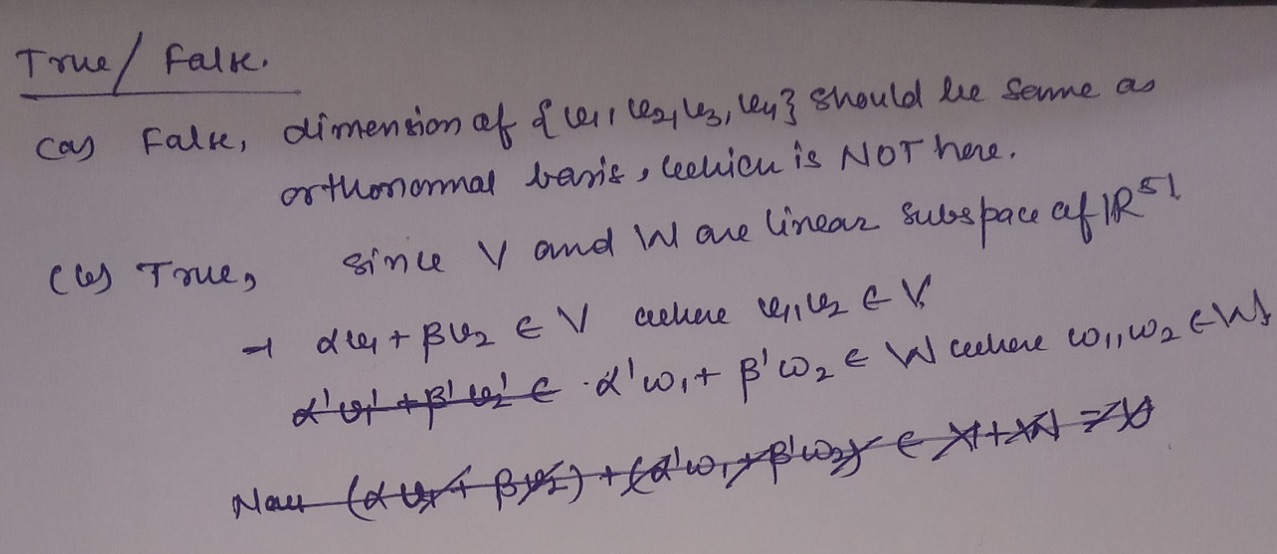 True/False.
(a) False, dimension of {v₁, v₂, v₃, v₄} should be same as
orthonormal basis, which is NOT here.
(b) True, since V and W are linear subspace of ℝ⁵¹
→ αv₁ + βv₂ ∈ V where v₁, v₂ ∈ V
α'v₁' + β'v₂' ∈ α'w₁ + β'w₂ ∈ W where w₁, w₂ ∈ W
Now (αv₁ + βv₂) + (α'w₁ + β'w₂) ∈ V+W =